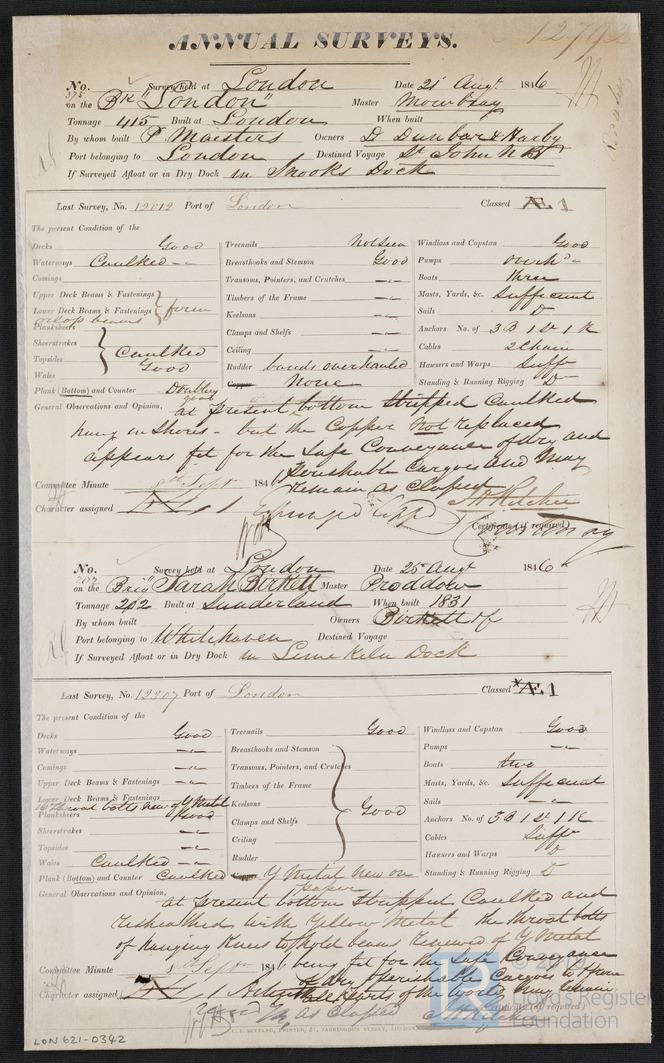 ANNUAL SURVEYS.
No. 375 Survey held at London Date 21 Augt. 1846
on the Bk "London" Master Mowbray
Tonnage 415 Built at London When built
By whom built P. Maisters Owners D Dunbar & Harby
Port belonging to London Destined Voyage St. John N B
If Surveyed Afloat or in Dry Dock in Snooks Dock
Last Survey, No. 12012 Port of London Classed Æ 1
The present Condition of the
Decks Good
Waterways Caulked
Comings
Upper Deck Beams & Fastenings
Lower Deck Beams & Fastenings firm
orlop beams
Planksheers
Sheerstrakes
Topsides Caulked
Wales Good
Plank (Bottom) and Counter Doubling good
Treenails Not seen
Breasthooks and Stemson Good
Transoms, Pointers, and Crutches
Timbers of the Frame
Keelsons
Clamps and Shelfs
Ceiling
Rudder bands overhauled
Copper None
Windlass and Capstan Good
Pumps overhd
Boats three
Masts, Yards, &c. Sufficient
Sails D
Anchors No. of 3 B 1 S 1 K
Cables 2 Chain
Hawsers and Warps Suffr
Standing & Running Rigging D
General Observations and Opinion, at present bottom stripped caulked
hung in shores - but the Copper not replaced
appears fit for the Safe Conveyance of dry and
perishable Cargoes and may
remain as classed
Committee Minute 8th Sept 184
Character assigned
Certificate (if required)
No. 202 Survey held at London Date 25 Augt 1846
on the Brig "Sarah Birkett Master Proddow
Tonnage 202 Built at Sunderland When built 1831
By whom built Owners Birkett
Port belonging to Whitehaven Destined Voyage
If Surveyed Afloat or in Dry Dock in Lime Kiln Dock
Last Survey, No. 12207 Port of London Classed *Æ 1
The present Condition of the
Decks Good
Waterways
Comings
Upper Deck Beams & Fastenings
Lower Deck Beams & Fastenings
throat bolts new of Y Metal
Planksheers Good
Sheerstrakes
Topsides
Wales Caulked
Plank (Bottom) and Counter Caulked
Treenails Good
Breasthooks and Stemson
Transoms, Pointers, and Crutches
Timbers of the Frame
Keelsons Good
Clamps and Shelfs
Ceiling
Rudder
Copper Y Metal New on paper
Windlass and Capstan Good
Pumps
Boats two
Masts, Yards, &c. Sufficient
Sails
Anchors No. of 3 B 1 S 1 K
Cables Suffr
Hawsers and Warps D
Standing & Running Rigging D
General Observations and Opinion, at present bottom Stripped Caulked and
resheathed with Yellow Metal the throat bolts
of hanging Knees to hold beams renewed of Y Metal
being fit for the Safe Conveyance
of dry & perishable Cargoes to & from
all parts of the World, may remain
as classed
Committee Minute 8th Sept 184
Character assigned
Certificate (if required)
LON 621-0342
© 2019
Lloyd's Register
Foundation